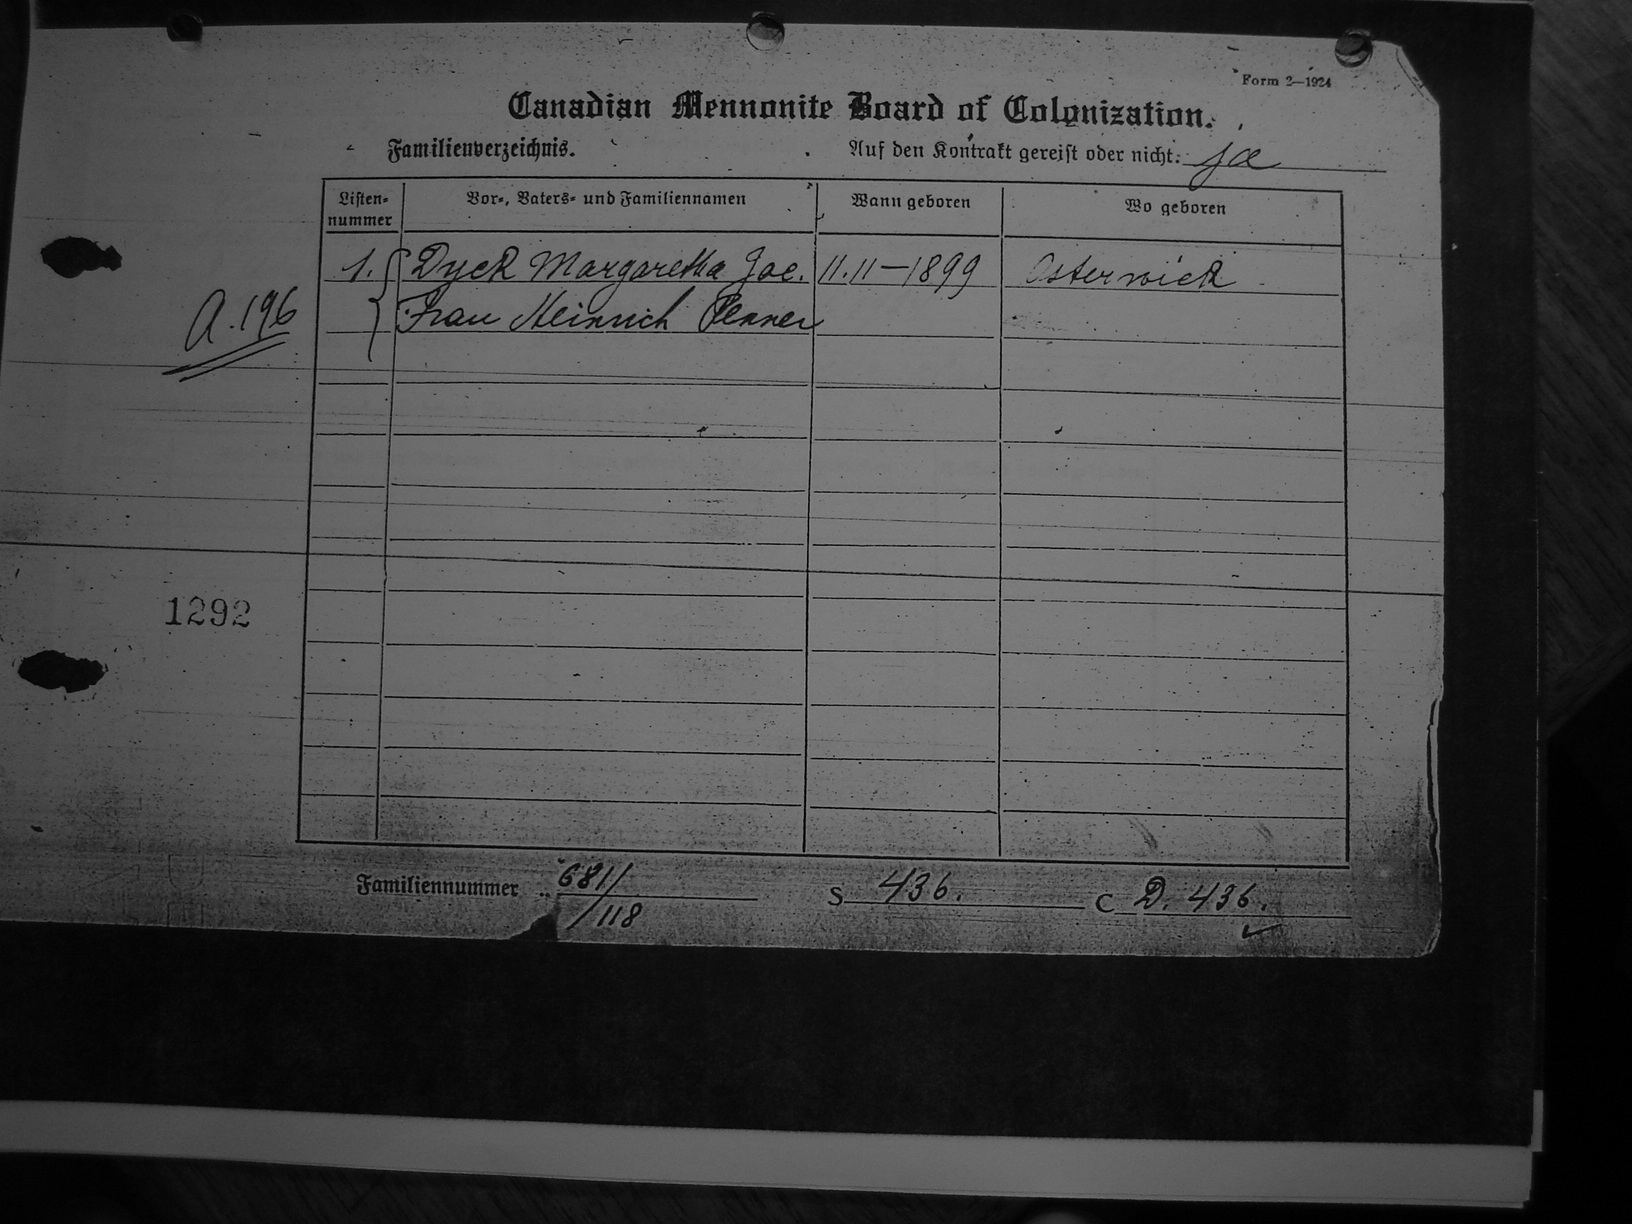 Form 2—1924
Canadian Mennonite Board of Colonization.
Familienverzeichnis. Auf den Kontrakt gereist oder nicht: ja
Listen-nummer Vor-, Vaters- und Familiennamen Wann geboren Wo geboren
1. Dyck Margaretha Jac. 11.11—1899 Osterwick
A.196 Frau Heinrich Penner
1292
Familiennummer 681/ S 436. C D. 436.
/118